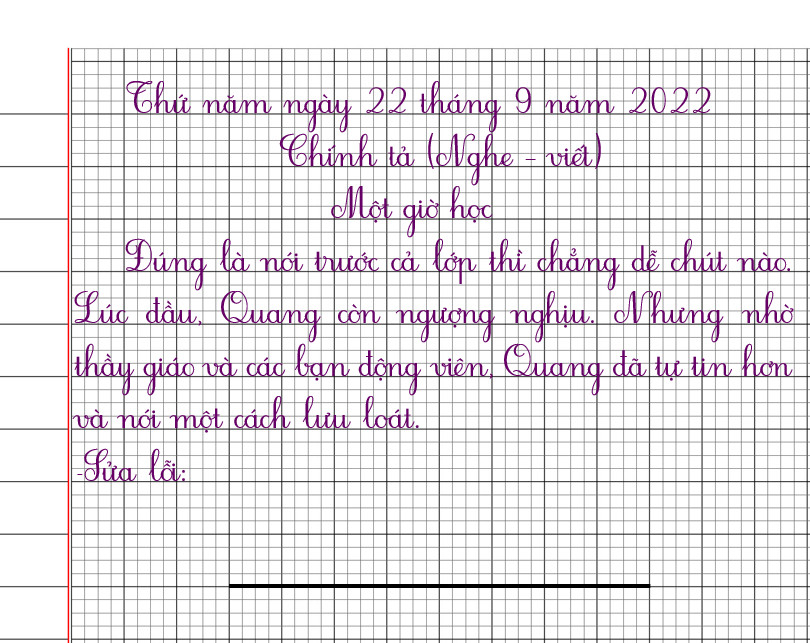 Thứ năm ngày 22 tháng 9 năm 2022
Chính tả (Nghe - viết)
Một giờ học
Đúng là nói trước cả lớp thì chẳng dễ chút nào.
Lúc đầu, Quang còn ngượng nghịu. Nhưng nhờ
thầy giáo và các bạn động viên, Quang đã tự tin hơn
và nói một cách lưu loát.
-Sửa lỗi: